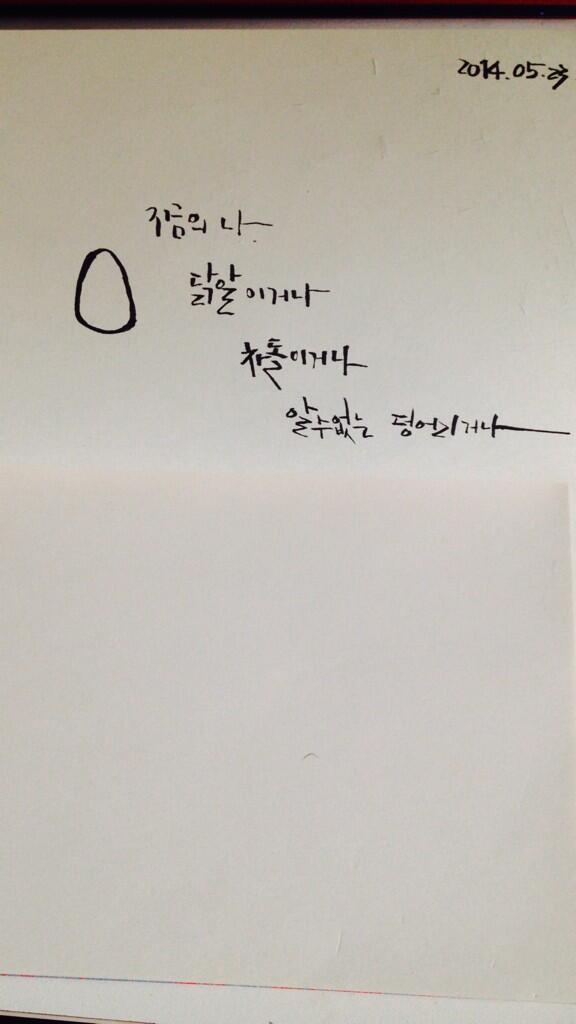 2014.05.23
지금의 나
닭알이거나
차돌이거나
알수없는 덩어리거나